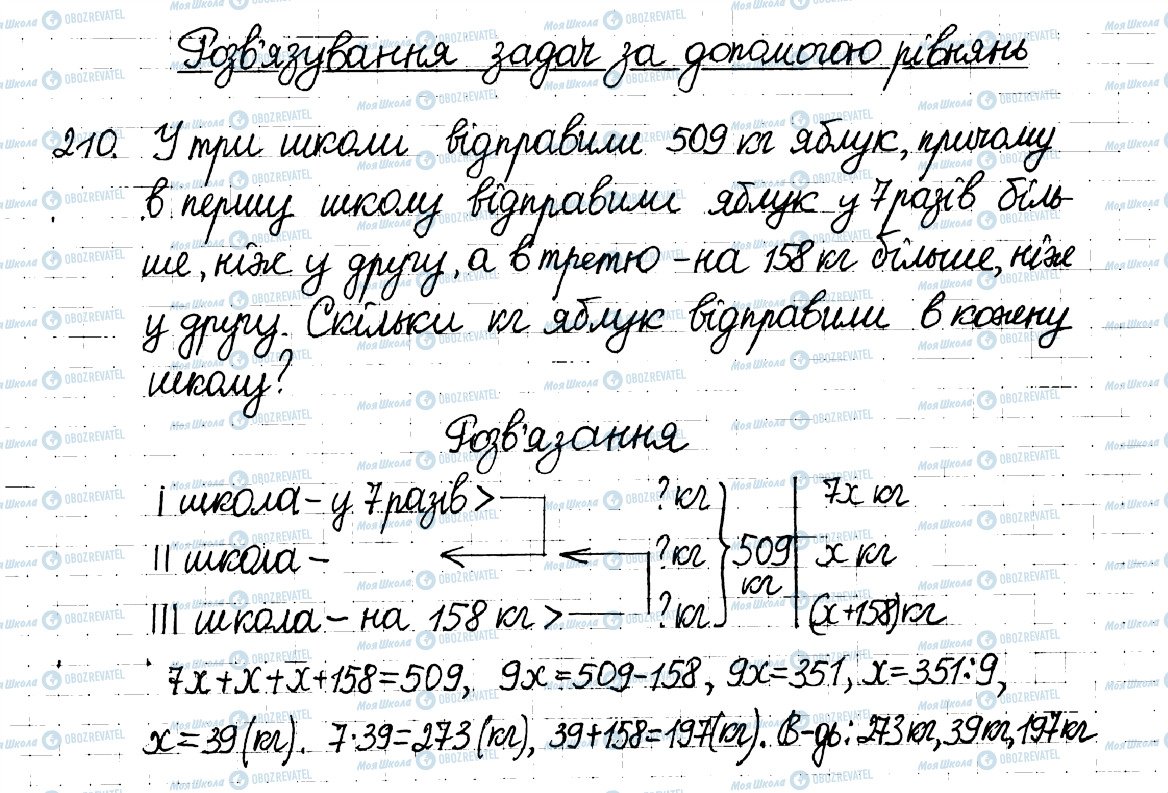 Розв'язування задач за допомогою рівнянь
210. У три школи відправили 509 кг яблук, причому
в першу школу відправили яблук у 7 разів біль-
ше, ніж у другу, а в третю - на 158 кг більше, ніж
у другу. Скільки кг яблук відправили в кожну
школу?
Розв'язання
І школа - у 7 разів > ? кг 7x кг
ІІ школа - ? кг 509 кг x кг
ІІІ школа - на 158 кг > ? кг (x+158) кг
7x+x+x+158=509, 9x=509-158, 9x=351, x=351:9,
x=39 (кг). 7·39=273 (кг), 39+158=197(кг). В-дь: 273 кг, 39 кг, 197 кг